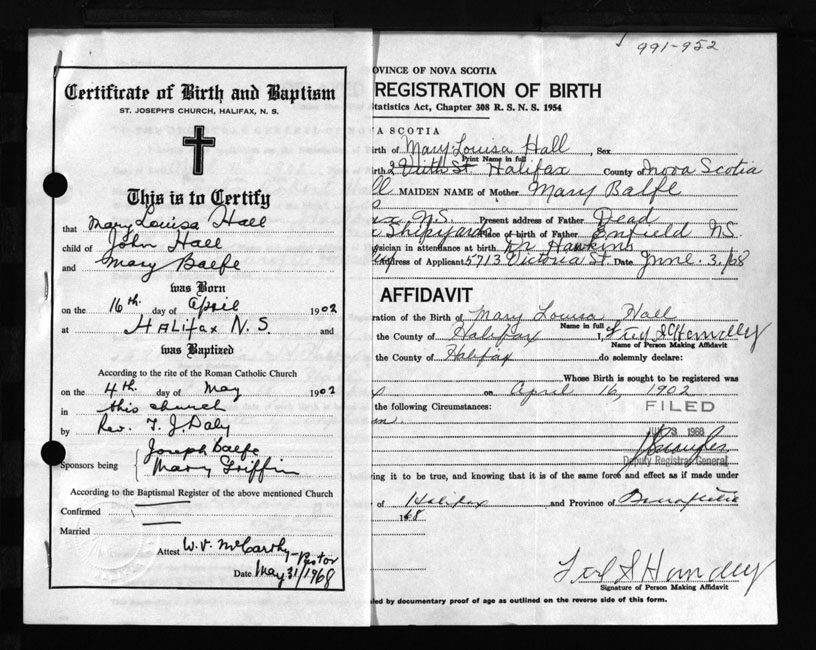 991-952
Certificate of Birth and Baptism
ST. JOSEPH'S CHURCH, HALIFAX, N. S.
This is to Certify
that Mary Louisa Hall
child of John Hall
and Mary Balfe
was Born
on the 16th day of April 1902
at Halifax N.S. and
was Baptized
According to the rite of the Roman Catholic Church
on the 4th day of May 1902
in this church
by Rev. T. J. Daly
Sponsors being Joseph Balfe
Mary Griffin
According to the Baptismal Register of the above mentioned Church
Confirmed
Married
Attest W. V. McCarthy - Pastor
Date May 31/1968
OVINCE OF NOVA SCOTIA
REGISTRATION OF BIRTH
tatistics Act, Chapter 308 R. S. N. S. 1954
A SCOTIA
Birth of Mary Louisa Hall, Sex
Print Name in full
Birth 2 Veith St. Halifax County of Nova Scotia
ll MAIDEN NAME of Mother Mary Balfe
N.S. Present address of Father Dead
Shipyards Place of birth of Father Enfield N.S.
ysician in attendance at birth Dr Hawkins
Address of Applicant 5713 Victoria St. Date June 3/68
AFFIDAVIT
ration of the Birth of Mary Louisa Hall
Name in full
the County of Halifax I,
Name of Person Making Affidavit
the County of Halifax do solemnly declare:
Whose Birth is sought to be registered was
on April 16, 1902
the following Circumstances:
FILED
1968
Deputy Registrar General
ving it to be true, and knowing that it is of the same force and effect as if made under
of Halifax and Province of
1968
Signature of Person Making Affidavit
ied by documentary proof of age as outlined on the reverse side of this form.